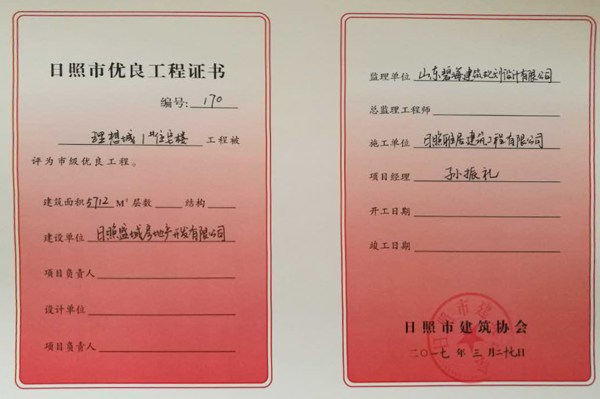 日照市优良工程证书
编号: 170
理想城1#住宅楼 工程被
评为市级优良工程。
建筑面积 5712 M² 层数 结构
建设单位 日照盛城房地产开发有限公司
项目负责人
设计单位
项目负责人
监理单位 山东碧海建筑规划设计有限公司
总监理工程师
施工单位 日照雅居建筑工程有限公司
项目经理 孙振礼
开工日期
竣工日期
日照市建筑协会
二〇一七年三月二十七日